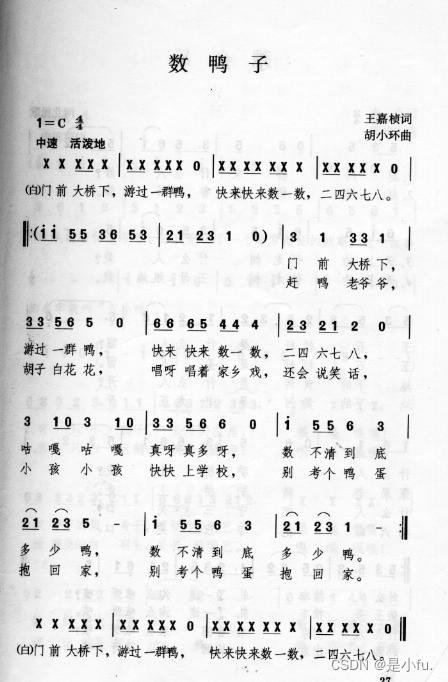 数 鸭 子
1=C 4/4
王嘉桢词
中速 活泼地
胡小环曲
X X X X X | X X X X X 0 | X X X X X X X | X X X X X 0 |
(白)门 前 大桥下, 游过一群鸭, 快来快来数一数, 二四六七八。
‖:(i i 5 5 3 6 5 3 | 2 1 2 3 1 0 ) | 3 1 3 3 1 |
门 前 大桥下,
赶 鸭 老爷爷,
3 3 5 6 5 0 | 6 6 6 5 4 4 4 | 2 3 2 1 2 0 |
游过 一群 鸭, 快来 快来 数一数, 二四 六七 八,
胡子 白花 花, 唱呀 唱着 家乡 戏, 还会 说笑 话,
3 1 0 3 1 0 | 3 3 5 6 6 0 | i 5 5 6 3 |
咕 嘎 咕 嘎 真呀 真多 呀, 数 不清 到 底
小 孩 小 孩 快快 上学 校, 别 考个 鸭 蛋
2 1 2 3 5 - | i 5 5 6 3 | 2 1 2 3 1 - :‖
多 少 鸭, 数 不清 到 底 多 少 鸭。
抱 回 家, 别 考个 鸭 蛋 抱 回 家。
X X X X X | X X X X X 0 | X X X X X X X | X X X X X 0 ‖
(白)门 前 大桥下, 游过一群鸭, 快来快来数一数, 二四六七八。
CSDN @是小fu.
27